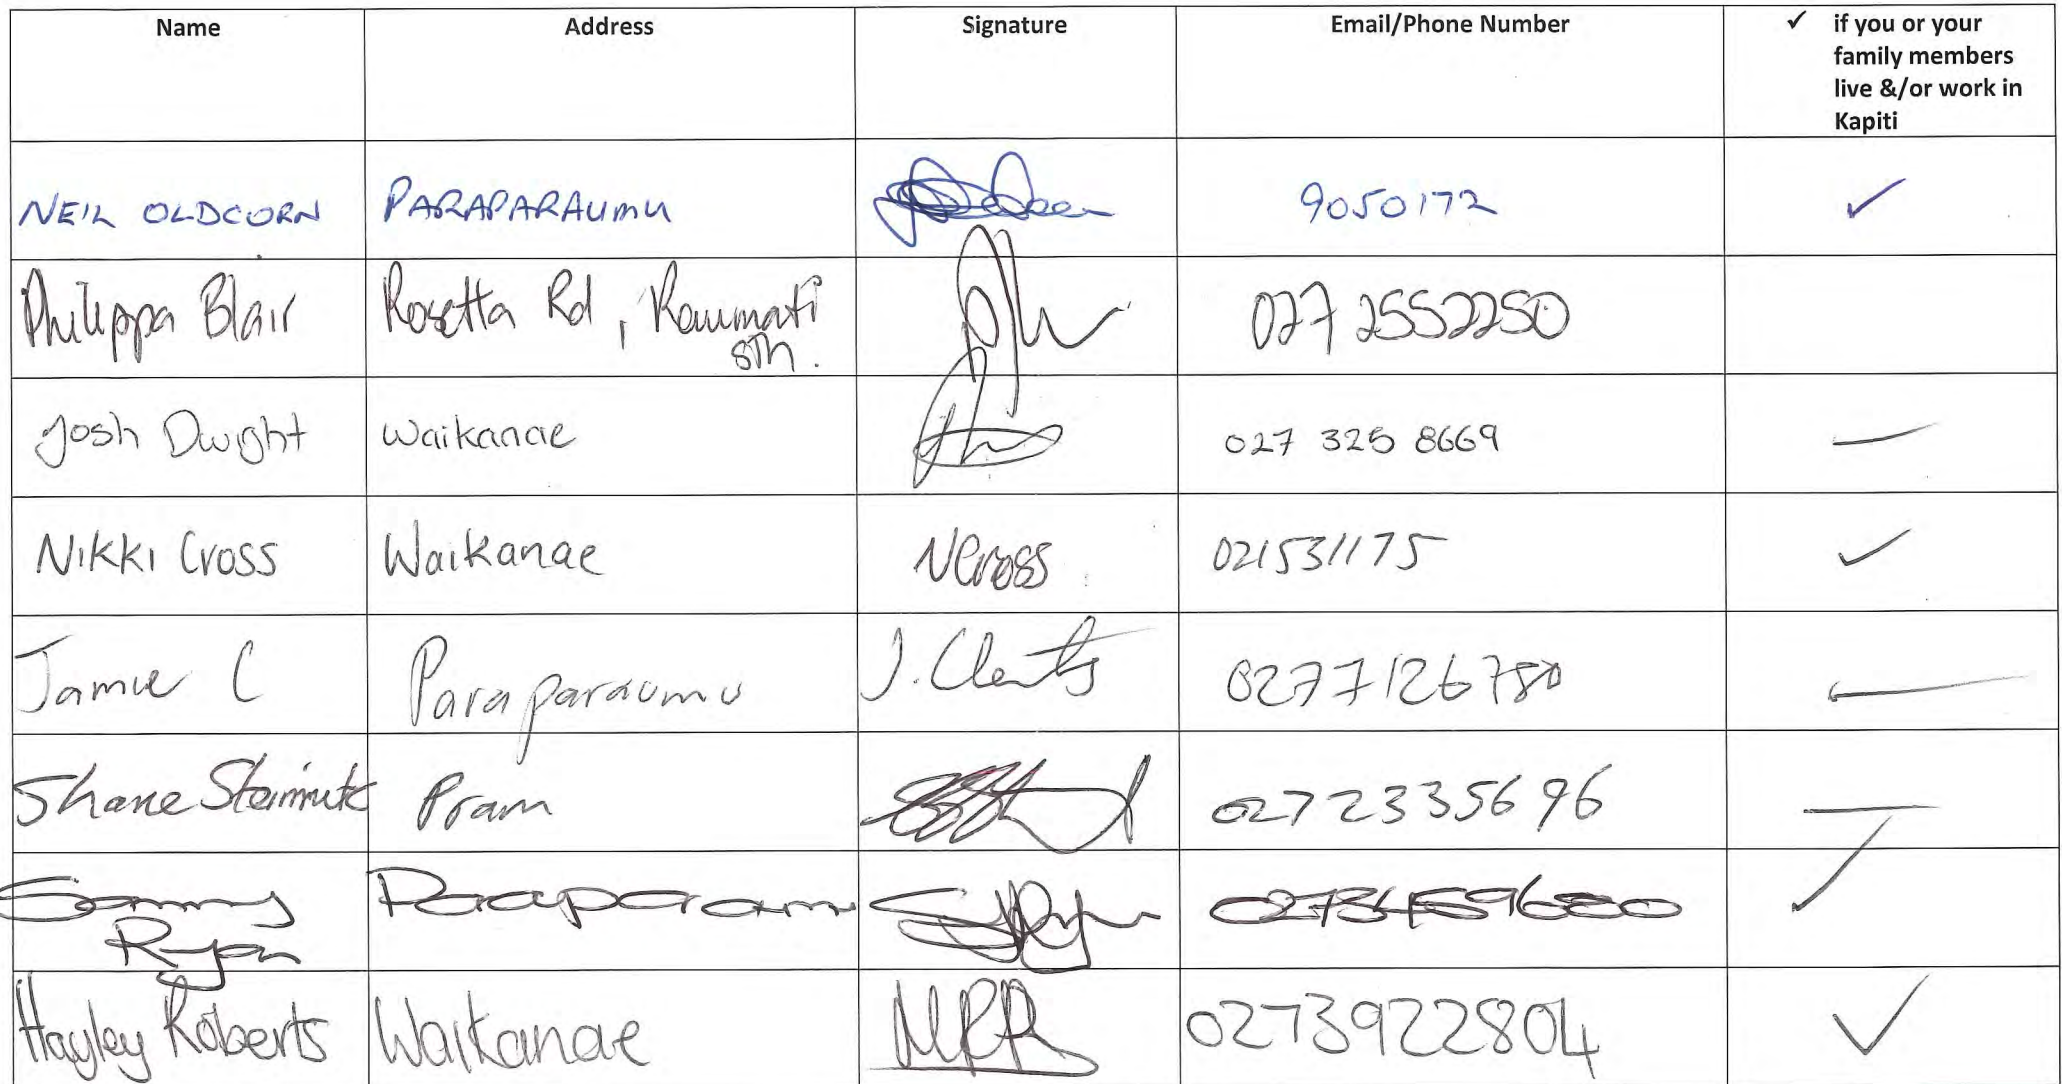 Name Address Signature Email/Phone Number ✓ if you or your
family members
live &/or work in
Kapiti
NEIL OLDCORN PARAPARAUMU 9050172 ✓
Philippa Blair Rosetta Rd, Raumati
sth. 027 2552250
Josh Dwight Waikanae 027 325 8669
Nikki Cross Waikanae NCross 021531175 ✓
Jamie C Paraparaumu J. Clents 0277126780
Shane Pram 0272335696
Sammy
Ryan ✓
Hayley Roberts Waikanae 02739222804 ✓